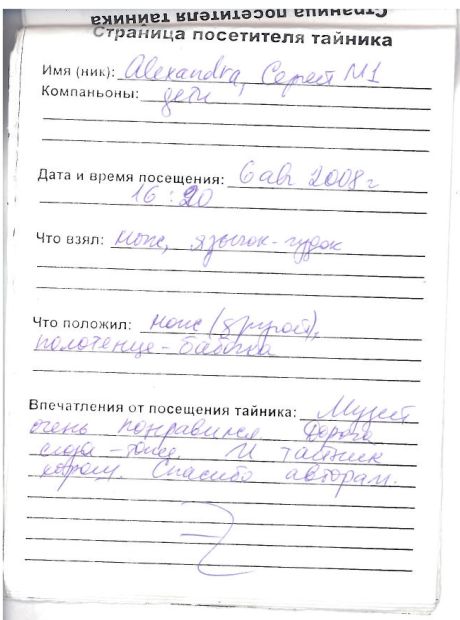 Страница посетителя тайника
Страница посетителя тайника
Имя (ник): Alexandra, Сергей М1
Компаньоны: дети
Дата и время посещения: 6 авг 2008 г
16:20
Что взял: нож, язычок-гудок
Что положил: нож (другой),
полотенце-бабочка
Впечатления от посещения тайника: Музей
очень понравился Дорога
сюда - тоже. И тайник
хорош. Спасибо авторам.